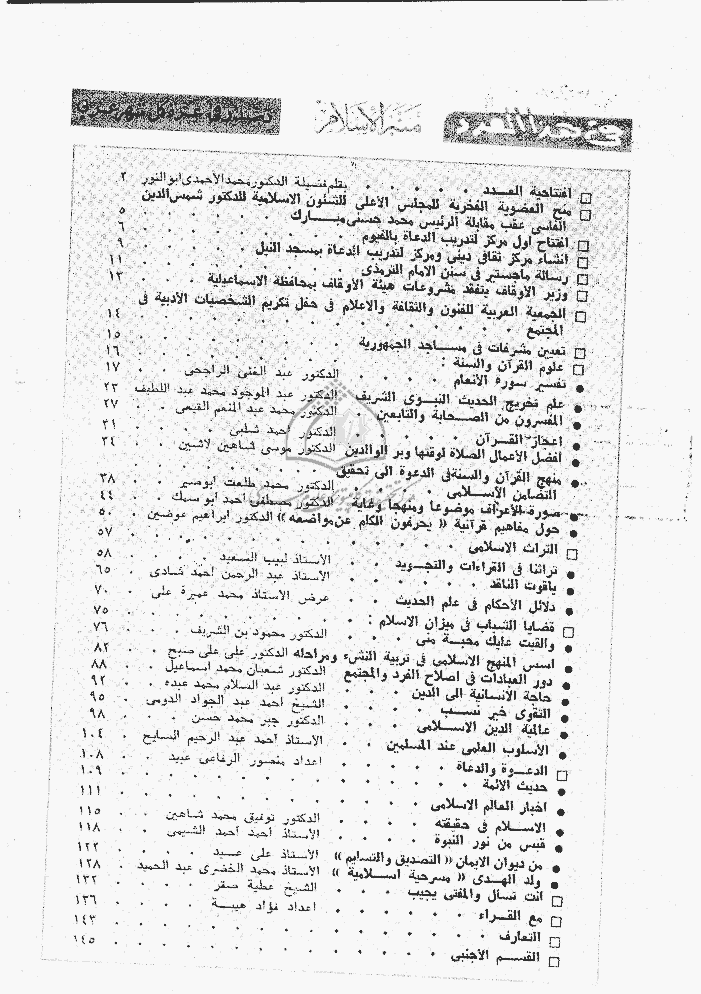 في هذا العدد
منبر الإسلام
□ افتتاحية العــدد . . . . . بقلم فضيلة الدكتور محمد الأحمدى أبو النور ٢
□ منح العضوية الفخرية للمجلس الأعلى للشئون الاسلامية للدكتور شمس الدين
الفاسى عقب مقابلة الرئيس محمد حسنى مبــارك . . . . . ٥
□ افتتاح أول مركز لتدريب الدعاة بالفيوم . . . . . ٦
□ انشاء مركز ثقافى دينى ومركز لتدريب الدعاة بمسجد النيل . . . ٩
□ رسالة ماجستير فى سنن الامام الترمذى . . . . . ١١
□ وزير الأوقاف يتفقد مشروعات هيئة الأوقاف بمحافظة الاسماعيلية . . ١٢
□ الجمعية العربية للفنون والثقافة والاعلام فى حفل تكريم الشخصيات الأدبية فى
المجتمع . . . . . ١٤
□ تعيين مشرفات فى مســاجد الجمهورية . . . . . ١٥
□ علوم القرآن والسنة : . . . . . ١٦
● تفسير سورة الأنعام . . . . الدكتور عبد الغنى الراجحى . . ١٧
● علم تخريج الحديث النبــوى الشريف الدكتور عبد الموجود محمد عبد اللطيف ٢٣
● المفسرون من الصــحابة والتابعين . الدكتور محمد عبد المنعم القيعى . . ٢٧
● اعجاز القــرآن . . . . الدكتور أحمد شلبى . . . ٣١
● أفضل الأعمال الصلاة لوقتها وبر الوالدين الدكتور موسى شاهين لاشين . . ٣٤
● منهج القرآن والسنة فى الدعوة الى تحقيق
التضامن الاســلامى . . . . الدكتور محمد طلعت أبو صير . . ٣٨
● صورة الأعراف موضوعا ومنهجا وغاية الدكتور مصطفى أحمد أبو سمك . . ٤٤
● حول مفاهيم قرآنية « يحرفون الكلم عن مواضعه » الدكتور ابراهيم عوضين . ٥٠
□ التراث الاسلامى . . . . . ٥٧
● تراثنا فى القراءات والتجــويد . . الأستاذ لبيب السعيد . . . ٥٨
● ياقوت الناقد . . . . . الأستاذ عبد الرحمن أحمد شادى . . ٦٥
● دلائل الأحكام فى علم الحديث . . عرض الأستاذ محمد عميرة على . ٧٠
□ قضايا الشباب فى ميزان الاسلام : . . . . . ٧٥
● وألقيت عليك محبــة منى . . . الدكتور محمود بن الشريف . . ٧٦
● أسس المنهج الاسلامى فى تربية النشء ومراحله الدكتور على على صبح . ٨٢
● دور العبادات فى اصلاح الفرد والمجتمع الدكتور شعبان محمد اسماعيل . . ٨٨
● حاجة الانسانية الى الدين . . . الدكتور عبد السلام محمد عبده . . ٩٢
● التقوى خير نســب . . . . الشيخ أحمد عبد الجواد الدومى . . ٩٥
● عالمية الدين الاســلامى . . . الدكتور جبر محمد حسن . . . ٩٨
● الأسلوب العلمى عند المسلمين . . الأستاذ أحمد عبد الرحيم السايح . . ١٠٤
□ الدعــوة والدعاة . . . . . اعداد منصور الرفاعى عبيد . . . ١٠٨
● حديث الأئمة . . . . . ١٠٩
● أخبار العالم الاسلامى . . . . . ١١١
● الاســلام فى حقيقته . . . . الدكتور توفيق محمد شــاهين . . ١١٥
● قبس من نور النبوة . . . . الأستاذ أحمد أحمد الشيمى . . ١١٨
● من ديوان الايمان « التصديق والتسليم » الأستاذ على عــيد . . . ١٢٢
● ولد الهــدى « مسرحية اســلامية » الأستاذ محمد الخضرى عبد الحميد . . ١٢٨
□ أنت تسأل والمفتى يجيب . . . الشيخ عطية صقر . . . ١٣٢
□ مع القــراء . . . . . اعداد فؤاد هيبــة . . . ١٣٦
□ التعارف . . . . . ١٤٣
□ القســم الأجنبى . . . . . ١٤٥